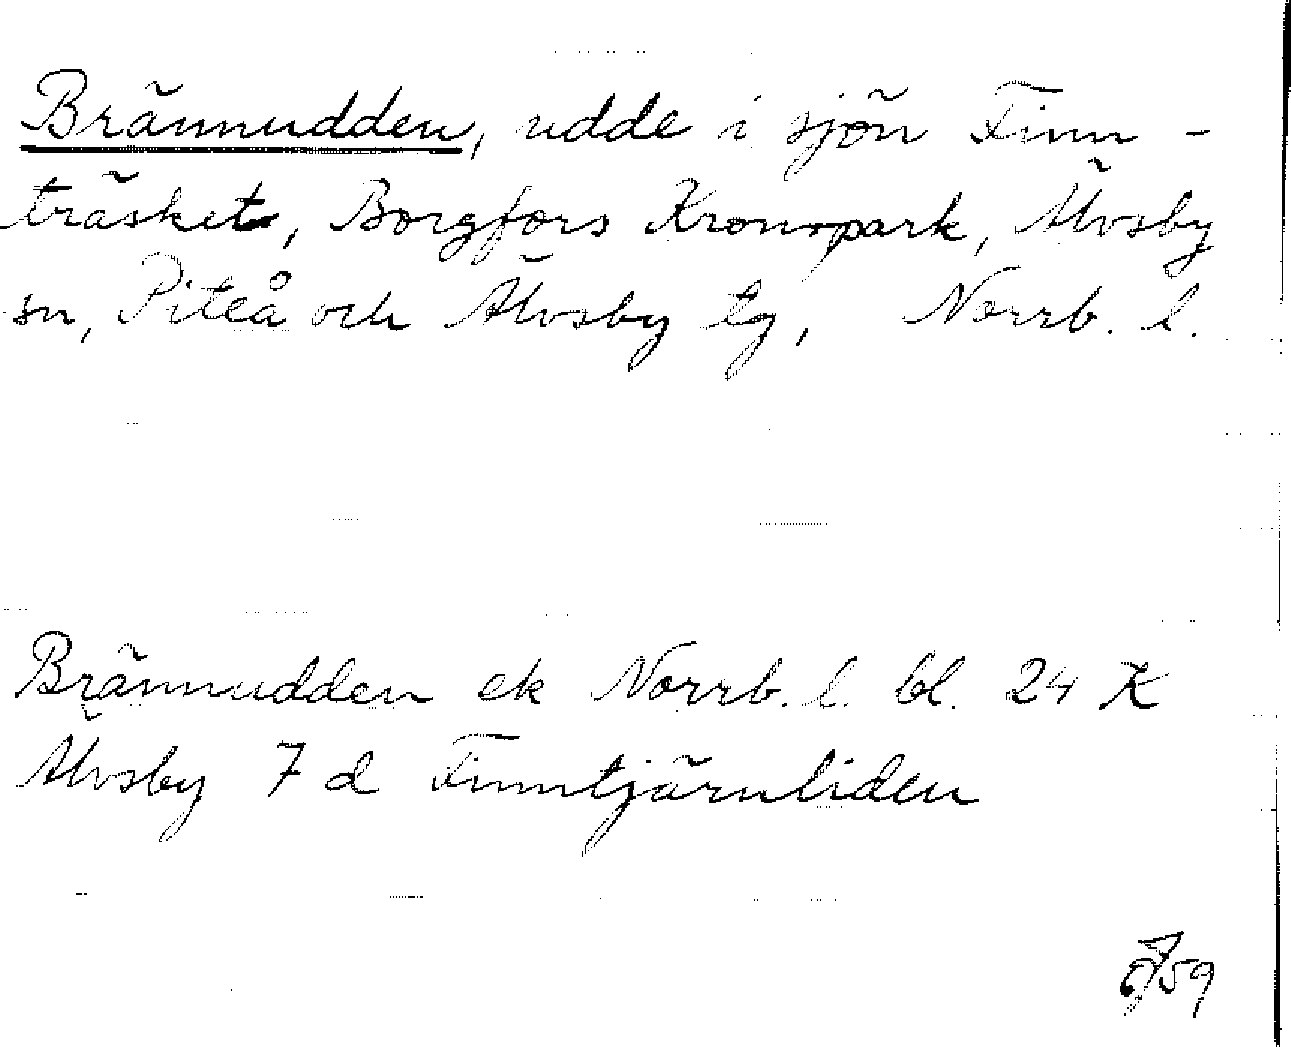 Brännudden, udde i sjön Finn-
träsket, Borgfors Kronopark, Älvsby
sn, Piteå och Älvsby tg, Norrb. l.
Brännudden ek Norrb. l. bl. 24 K
Älvsby 7 d Finntjärnliden
59